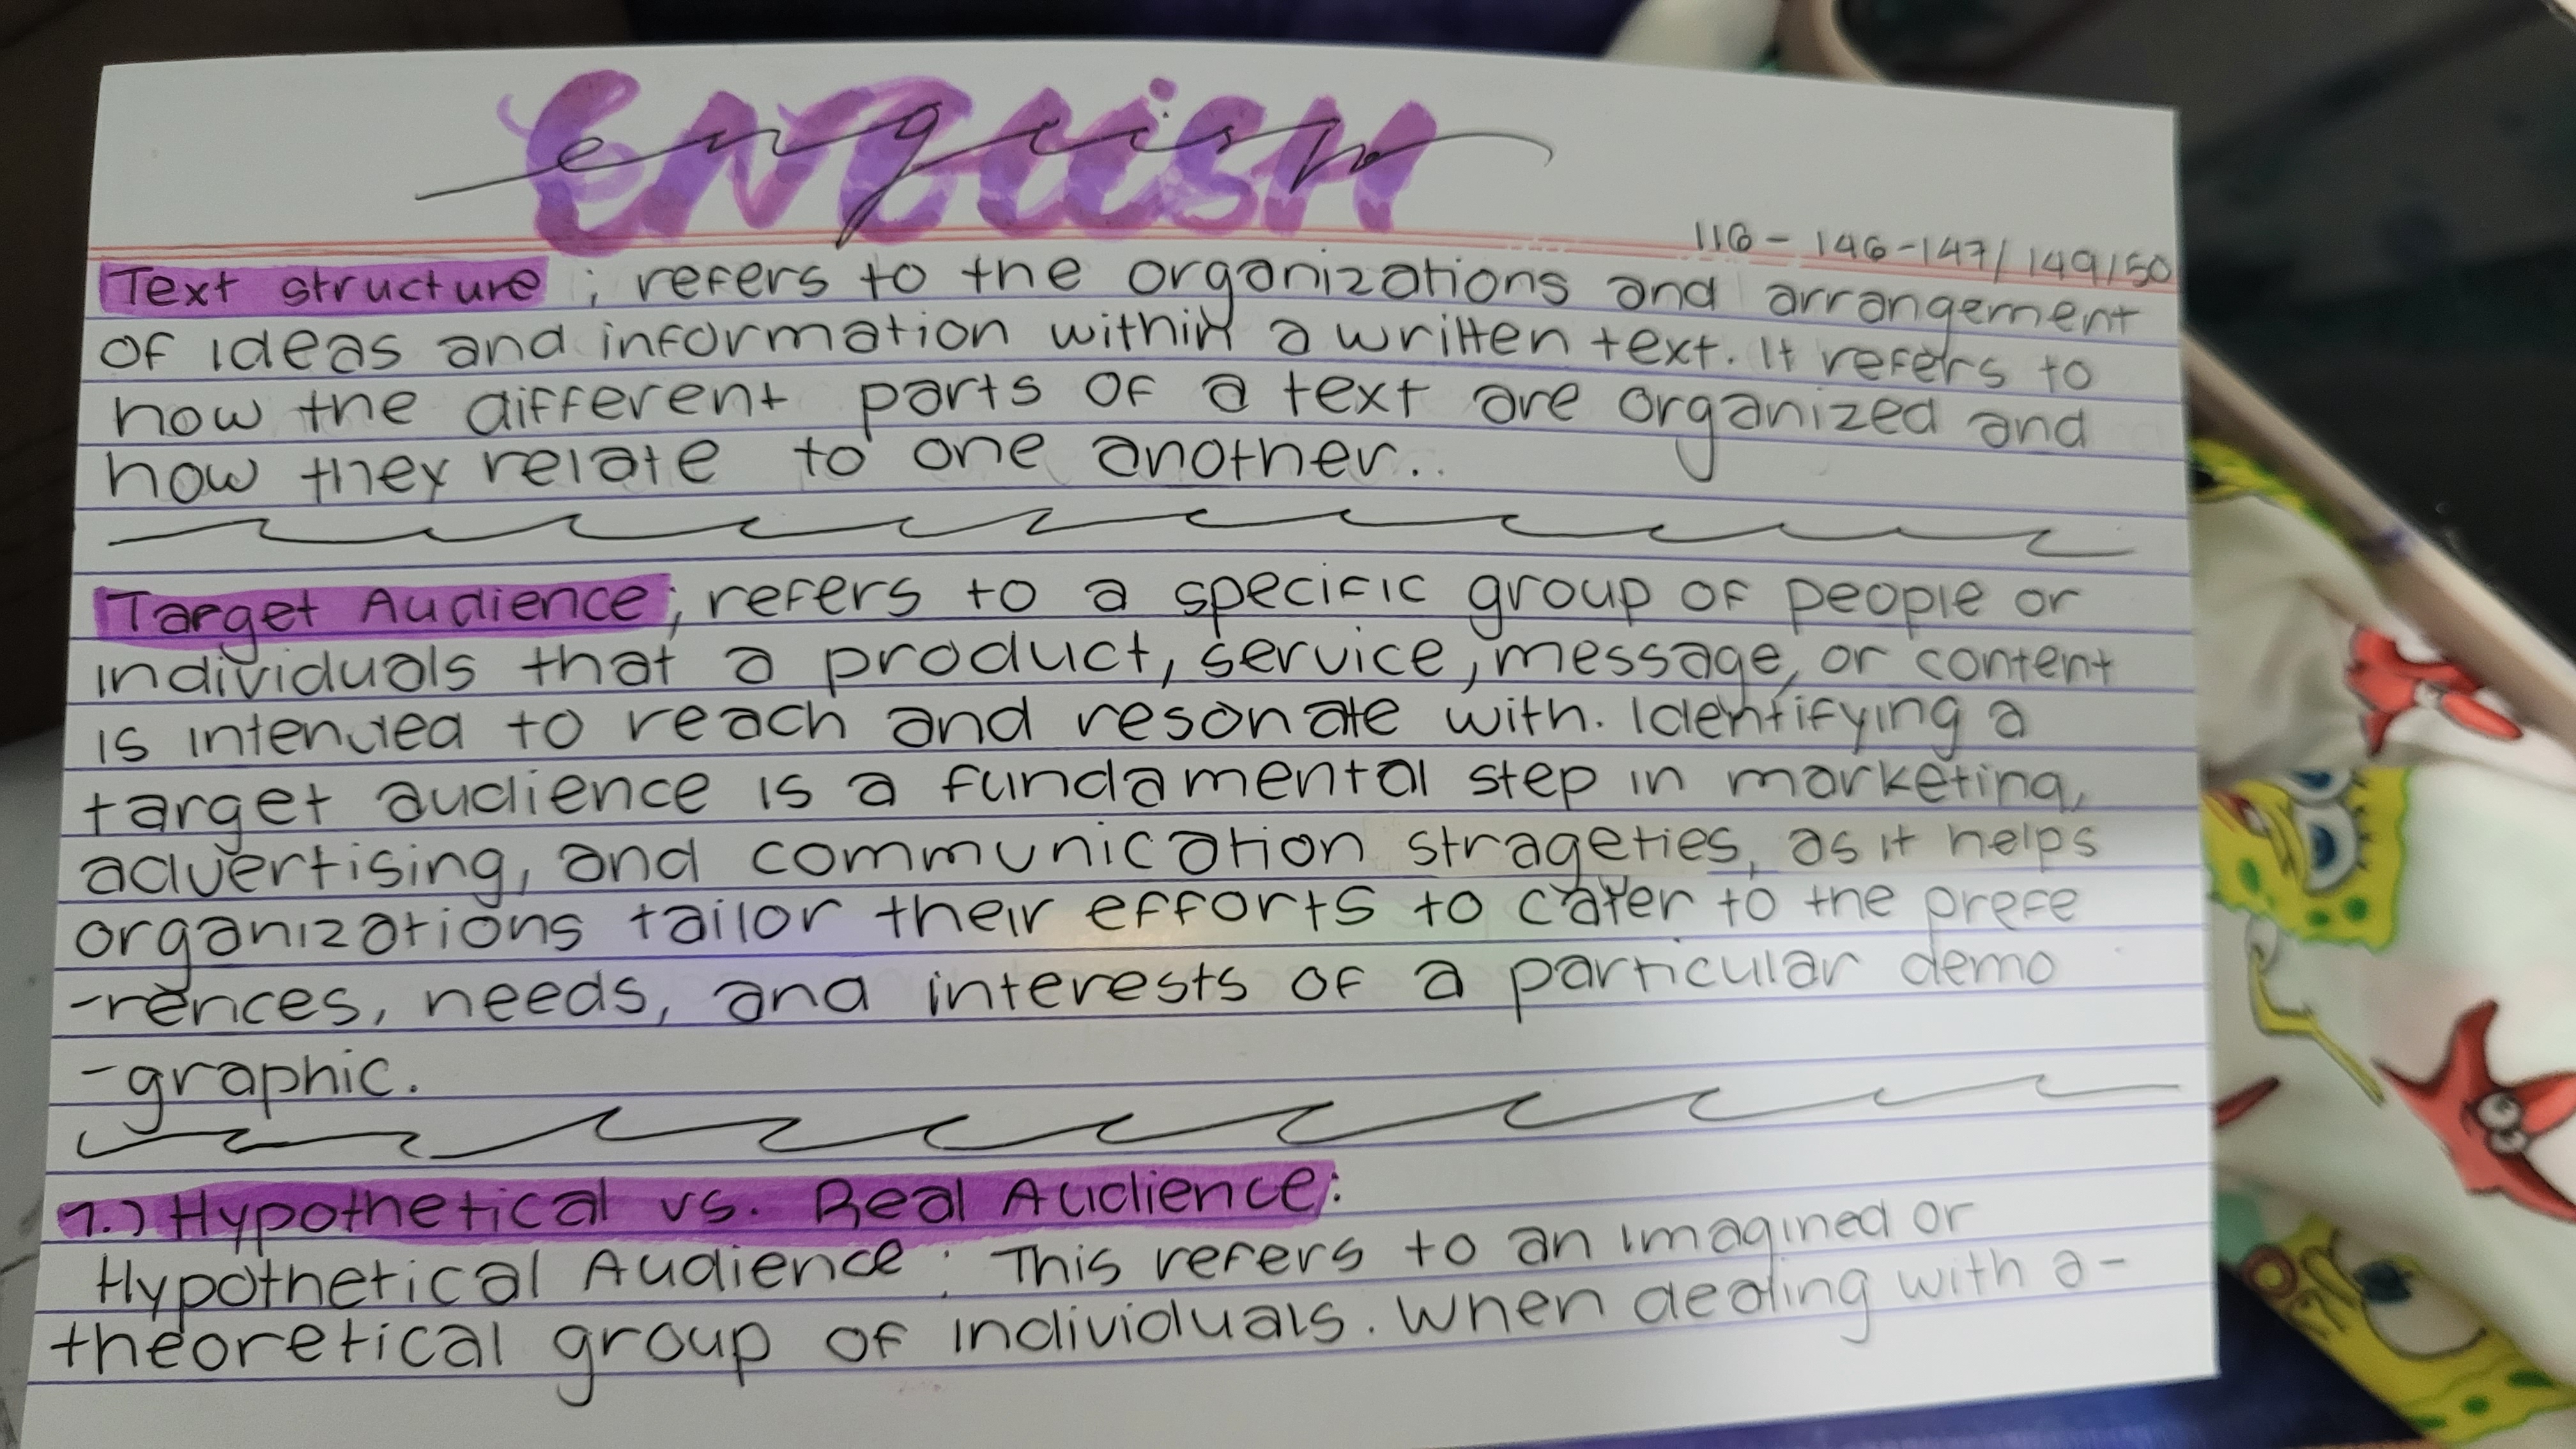 English
116 - 146-147/ 149/50
Text structure ; refers to the organizations and arrangement
of ideas and information within a written text. It refers to
how the different parts of a text are organized and
how they relate to one another..
Target Audience; refers to a specific group of people or
individuals that a product, service, message, or content
is intended to reach and resonate with. Identifying a
target audience is a fundamental step in marketing,
advertising, and communication strageties, as it helps
organizations tailor their efforts to cater to the prefe
-rences, needs, and interests of a particular demo
-graphic.
1.) Hypothetical vs. Real Audience:
Hypothetical Audience: This refers to an imagined or
theoretical group of individuals. When dealing with a-